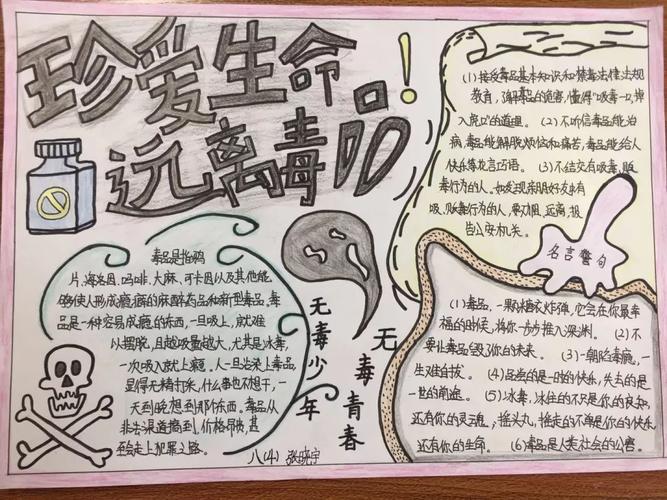 珍爱生命
远离毒品!
(1)接受毒品基本知识和禁毒法律法规
教育,了解毒品的危害,懂得“吸毒一口,掉
入虎口”的道理。(2)不听信毒品能治
病,毒品能解脱烦恼和痛苦,毒品能给人
快乐等花言巧语。(3)不结交有吸毒、贩
毒行为的人。如发现亲朋好友有
吸、贩毒行为的人,要劝阻、远离、报
告公安机关。
毒品是指鸦
片、海洛因、吗啡、大麻、可卡因以及其他能
够使人形成瘾癖的麻醉药品和新型毒品,毒
品是一种容易成瘾的东西,一旦吸上,就难
以摆脱,且越吸量越大,尤其是冰毒,
一次吸入就上瘾。人一旦沾染上毒品,
显得无精打采,什么事也不想干,一
天到晚想到那个东西。毒品从
非法渠道搞到,价格昂贵,甚
至会走上犯罪之路。
无毒少年
无毒青春
八(4) 张晓宇
名言警句
(1)毒品,一颗糖衣炸弹,它会在你最幸
福的时候,将你一步步推入深渊。(2)不
要让毒品毁了你的未来。(3)一朝陷毒瘾,一
生难自拔。(4)品尝的是一时的快乐,失去的是
一世的前途。(5)冰毒,冰住的不只是你的良知,
还有你的灵魂;摇头丸,摇走的不单是你的快乐
还有你的生命。(6)毒品是人类社会的公害。